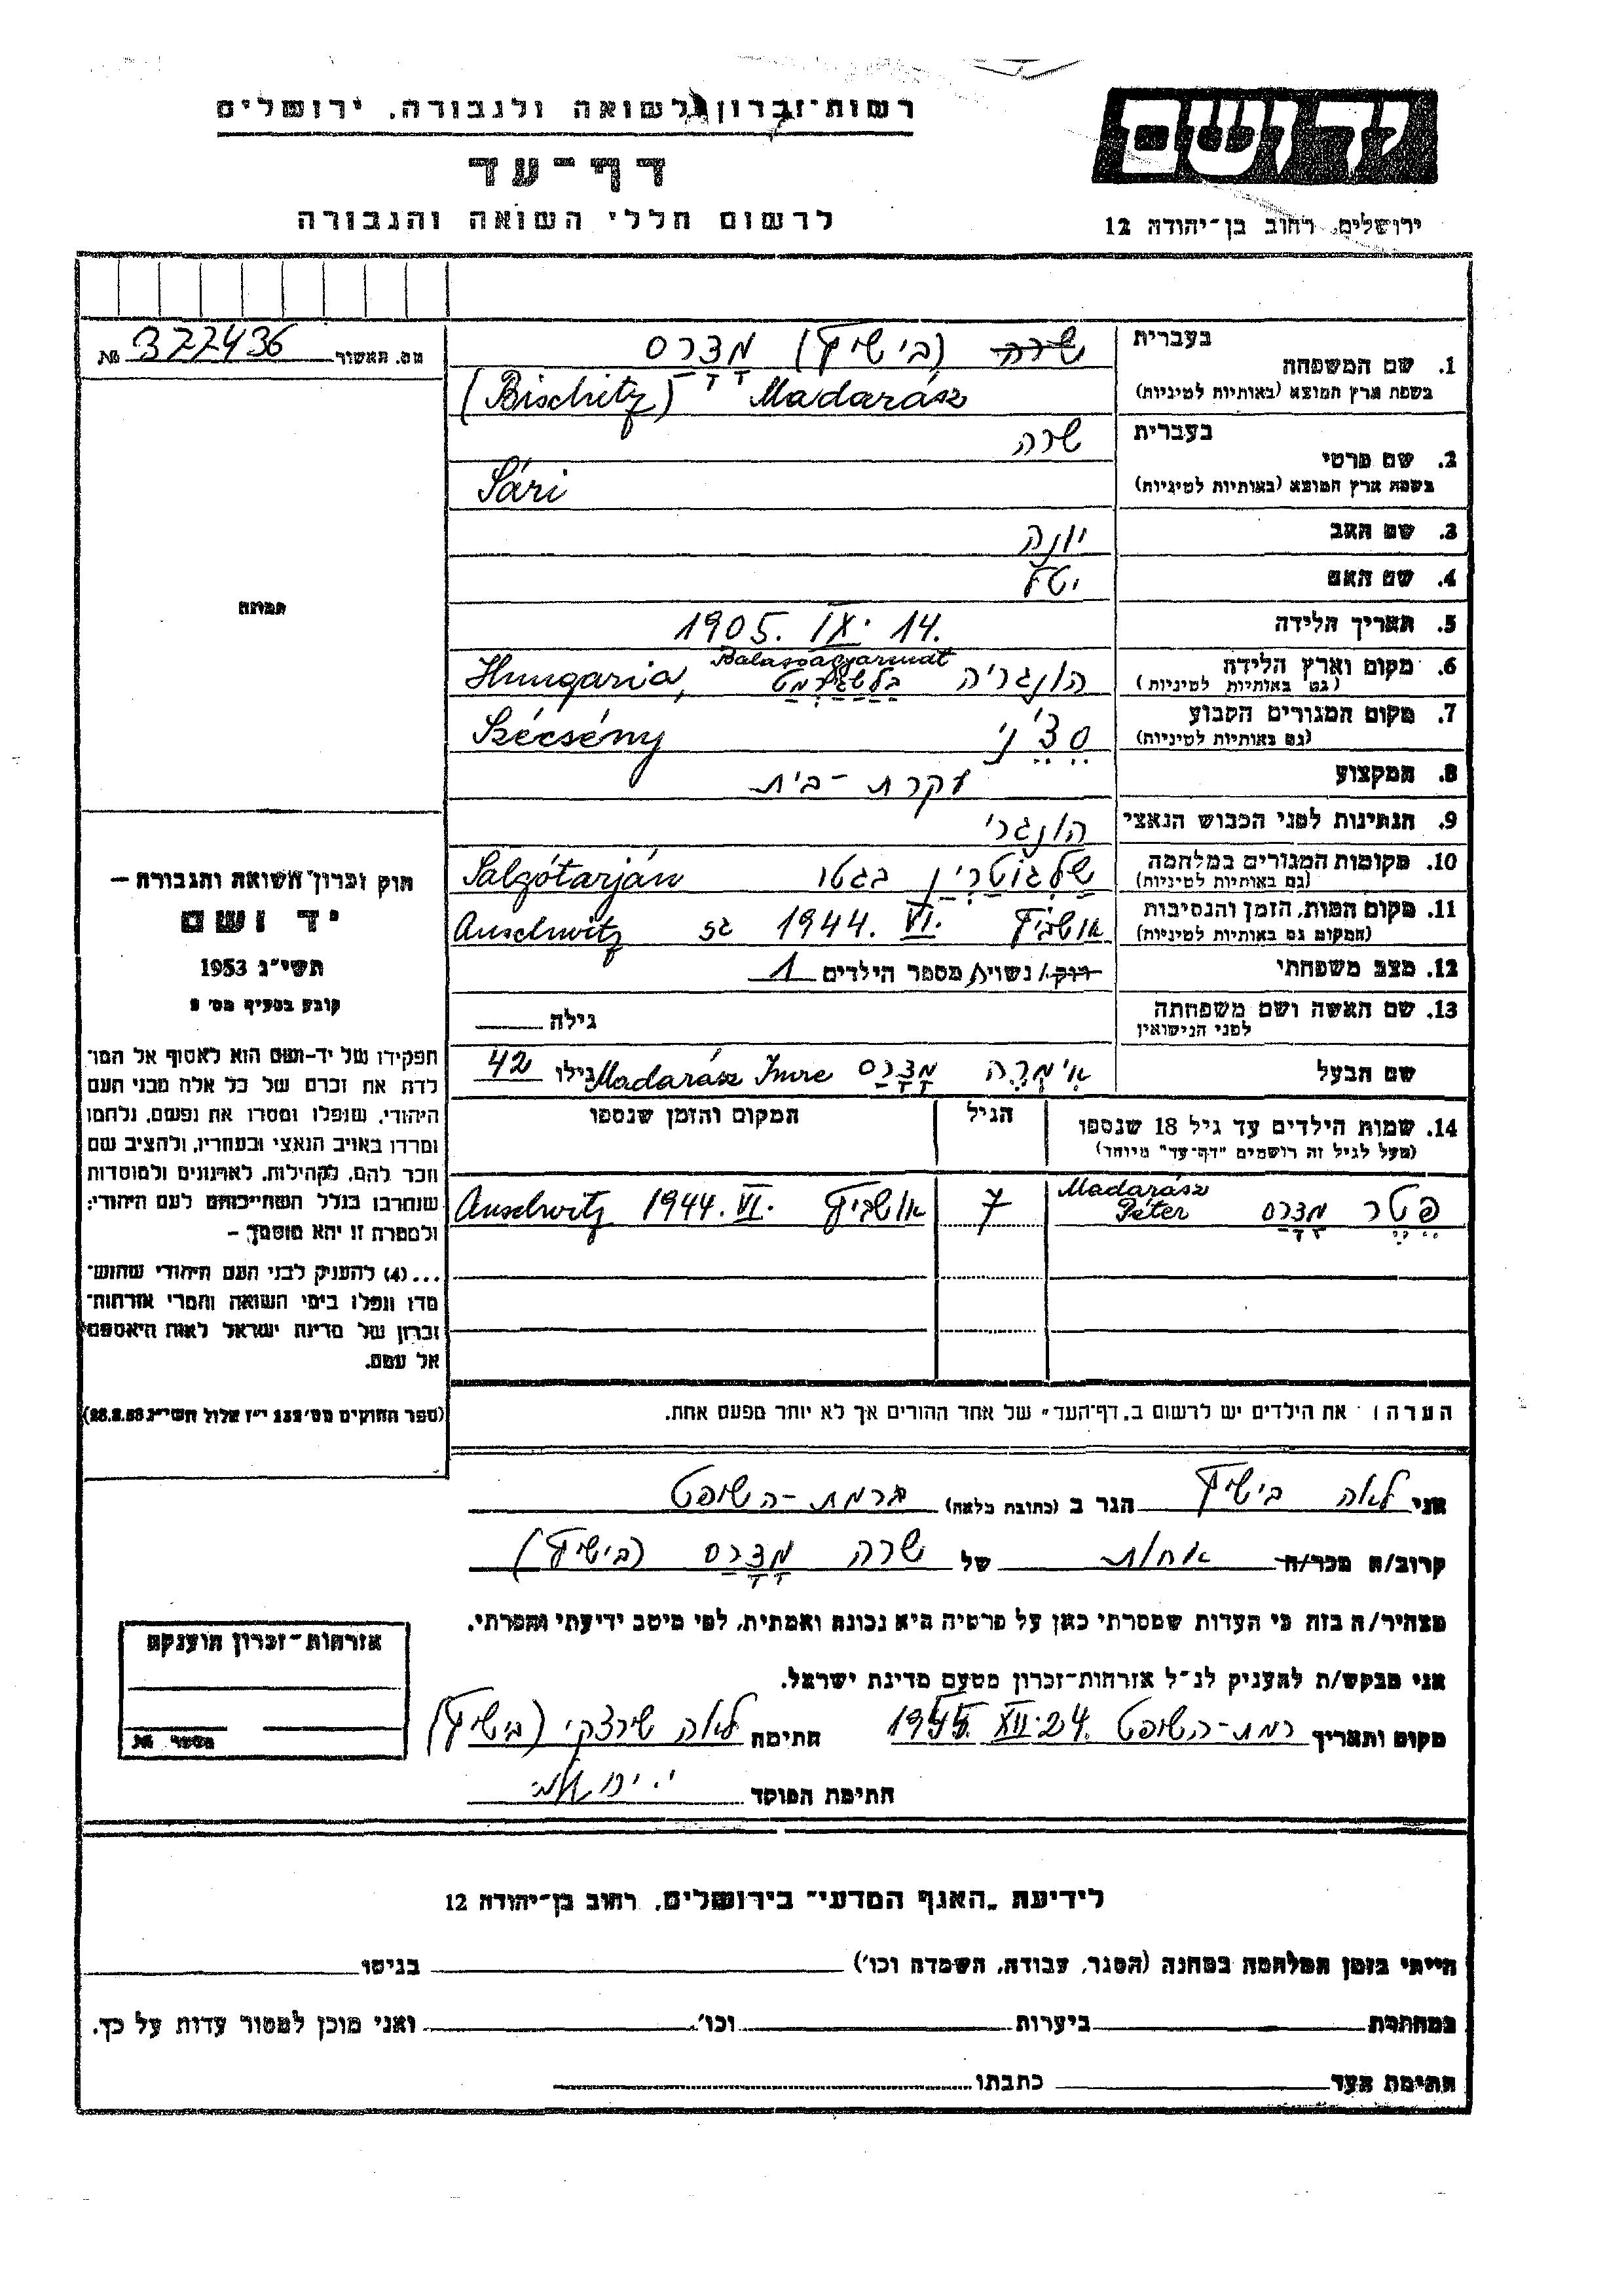 רשות־זכרון לשואה ולגבורה, ירושלים
יד ושם
דף־עד
לרשום חללי השואה והגבורה
ירושלים, רחוב בן־יהודה 12
מס. האשור № 377436
בעברית
1. שם המשפחה
בשפת ארץ המוצא (באותיות לטיניות)
שרה (בישיץ) מדרס
(Bischitz) Madarász
בעברית
2. שם פרטי
בשפת ארץ המוצא (באותיות לטיניות)
שרה
Sári
3. שם האב יונה
4. שם האם
5. תאריך הלידה 1905. IX. 14.
6. מקום וארץ הלידה
(גם באותיות לטיניות)
Balassagyarmat
הונגריה Hungaria,
7. מקום המגורים הקבוע
(גם באותיות לטיניות)
סצ'ני Szécsény
8. המקצוע עקרת-בית
9. הנתינות לפני הכבוש הנאצי הונגרי
10. מקומות המגורים במלחמה
(גם באותיות לטיניות)
שלגוטרין בגטו Salgótarján
11. מקום המות, הזמן והנסיבות
(המקום גם באותיות לטיניות)
אושביץ 1944. VI. Auschwitz
12. מצב משפחתי רוק/ נשוי/ מספר הילדים 1
13. שם האשה ושם משפחתה
לפני הנישואין
גילה
שם הבעל אימרה מדרס Madarász Imre גילו 42
14. שמות הילדים עד גיל 18 שנספו
(מעל לגיל זה רושמים "דף־עד" מיוחד)
הגיל
המקום והזמן שנספו
פטר מדרס Madarász Péter 7 אושביץ 1944. VI. Auschwitz
הערה: את הילדים יש לרשום ב„דף־העד" של אחד ההורים אך לא יותר מפעם אחת.
תמונה
חוק זכרון השואה והגבורה —
יד ושם
תשי"ג 1953
קובע בסעיף מס' 2
תפקידו של יד-ושם הוא לאסוף אל המו־
לדת את זכרם של כל אלה מבני העם
היהודי, שנפלו ומסרו את נפשם, נלחמו
ומרדו באויב הנאצי ובעוזריו, ולהציב שם
וזכר להם, לקהילות, לארגונים ולמוסדות
שנחרבו בגלל השתייכותם לעם היהודי;
ולמטרה זו יהא מוסמך —
...(4) להעניק לבני העם היהודי שהוש־
מדו ונפלו בימי השואה והמרי אזרחות־
זכרון של מדינת ישראל לאות היאספם
אל עמם.
(ספר החוקים מס' 132 י"ז אלול תשי"ג 28.8.53)
אני לאה בישיץ הגר ב (כתובת מלאה) רמת-השופט
קרוב/ה מכר/ה אחות של שרה מדרס (בישיץ)
מצהיר/ה בזה כי העדות שמסרתי כאן על פרטיה היא נכונה ואמתית, לפי מיטב ידיעתי והכרתי.
אני מבקש/ת להעניק לנ"ל אזרחות־זכרון מטעם מדינת ישראל.
מקום ותאריך רמת-השופט 1955. XII. 24. חתימה לאה (בישיץ)
חתימת הפוקד
אזרחות־זכרון הוענקה
№
לידיעת „האגף המדעי" בירושלים, רחוב בן־יהודה 12
הייתי בזמן המלחמה במחנה (הסגר, עבודה, השמדה וכו') בגיטו
במחתרת ביערות וכו'. ואני מוכן למסור עדות על כך.
חתימת העד כתבתו